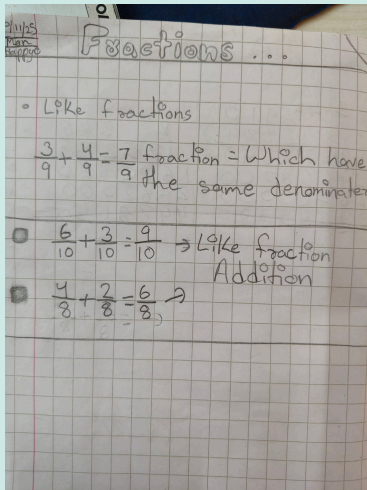 10
Fractions ...
• Like fractions
3/9 + 4/9 = 7/9 fraction = Which have
the same denominater
6/10 + 3/10 = 9/10 → Like fraction
Addition
4/8 + 2/8 = 6/8 →